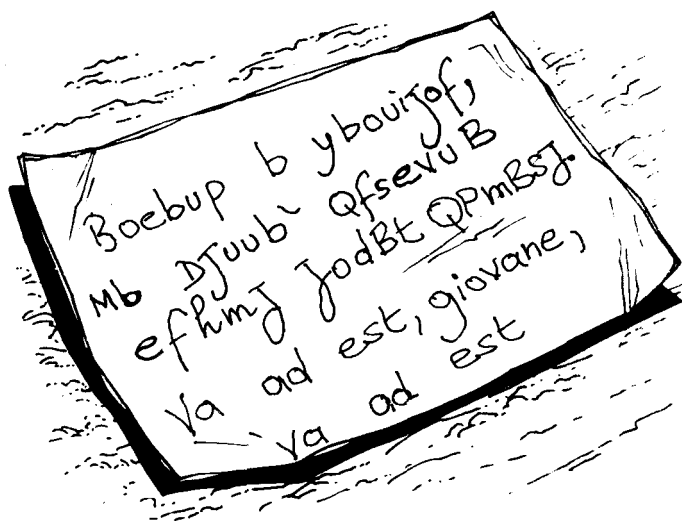 Boebup b ybouiJof,
Mb DJuub` QfsevuB
efhmJ JodBt QPmBSJ.
Va ad est, giovane,
va ad est